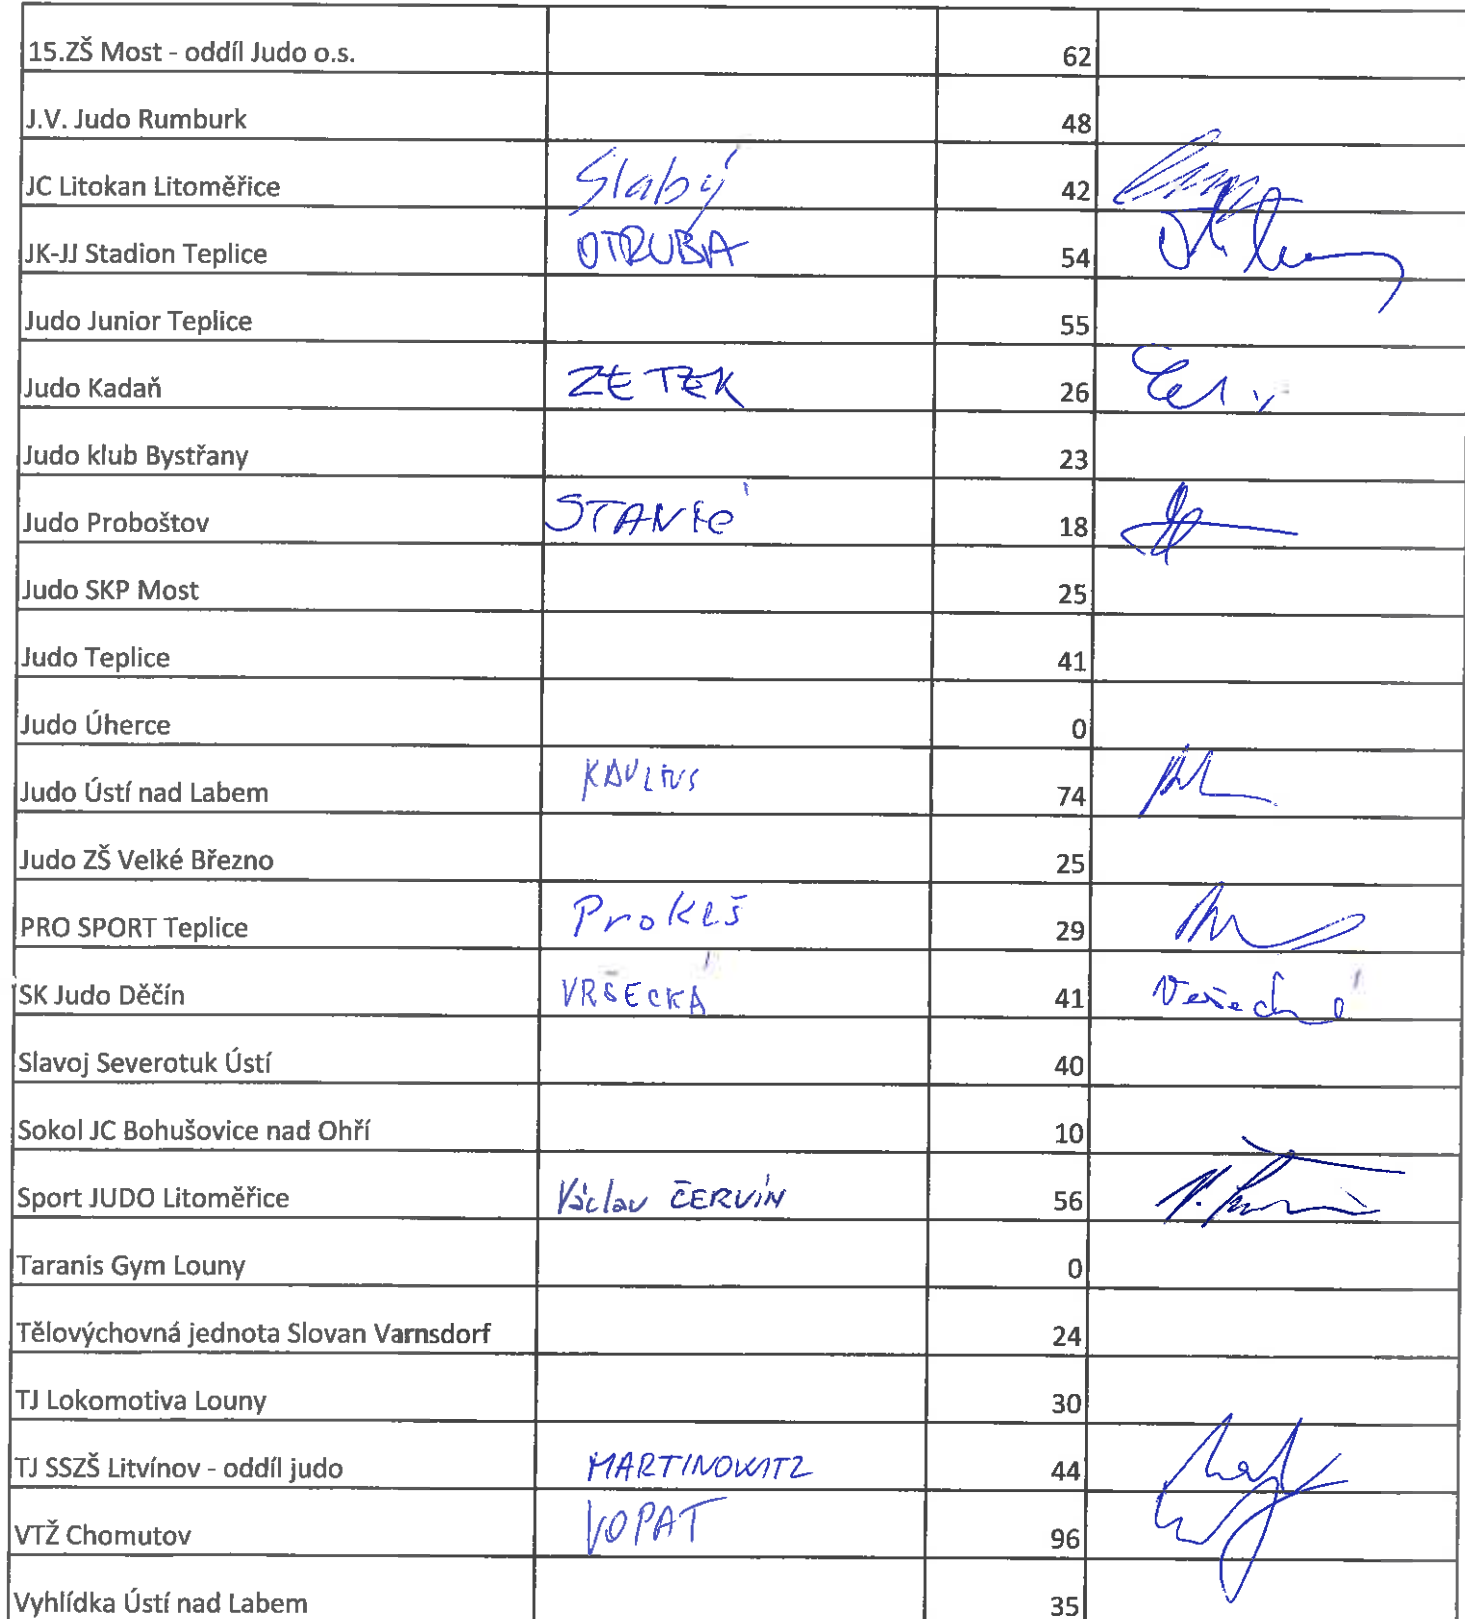 15.ZŠ Most - oddíl Judo o.s. 62
J.V. Judo Rumburk 48
JC Litokan Litoměřice Slabý 42
JK-JJ Stadion Teplice OTRUBA 54
Judo Junior Teplice 55
Judo Kadaň ZETEK 26
Judo klub Bystřany 23
Judo Proboštov 18
Judo SKP Most 25
Judo Teplice 41
Judo Úherce 0
Judo Ústí nad Labem 74
Judo ZŠ Velké Březno 25
PRO SPORT Teplice Prokeš 29
SK Judo Děčín VRŠECKÁ 41
Slavoj Severotuk Ústí 40
Sokol JC Bohušovice nad Ohří 10
Sport JUDO Litoměřice Václav ČERVÍN 56
Taranis Gym Louny 0
Tělovýchovná jednota Slovan Varnsdorf 24
TJ Lokomotiva Louny 30
TJ SSZŠ Litvínov - oddíl judo MARTINOWITZ 44
VTŽ Chomutov VOPAT 96
Vyhlídka Ústí nad Labem 35